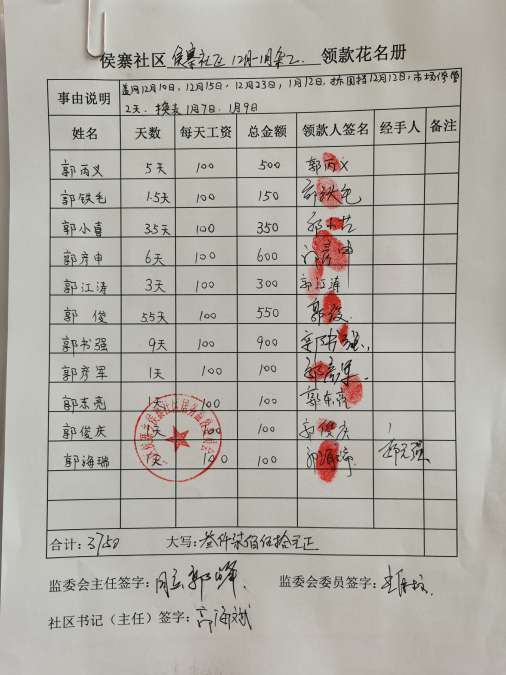 侯寨社区 侯寨社区12月-1月杂工 领款花名册
事由说明 盖网12月10日,12月15日,12月23日,1月12日,拆围挡12月12日,市场值管
2天,换表1月7日、1月9日
姓名 天数 每天工资 总金额 领款人签名 经手人 备注
郭丙义 5天 100 500 郭丙义
郭铁毛 1.5天 100 150 郭铁毛
郭小真 3.5天 100 350
郭彦申 6天 100 600 郭彦申
郭江涛 3天 100 300 郭江涛
郭俊 5.5天 100 550 郭俊
郭书强 9天 100 900 郭书强
郭彦军 1天 100 100 郭彦军
郭东亮 1天 100 100 郭东亮
郭俊庆 1天 100 100 郭俊庆
郭海瑞 1天 100 100 郭海瑞
合计:3750 大写:叁仟柒佰伍拾元正
监委会主任签字:同意 郭 监委会委员签字:
社区书记(主任)签字:郭海斌